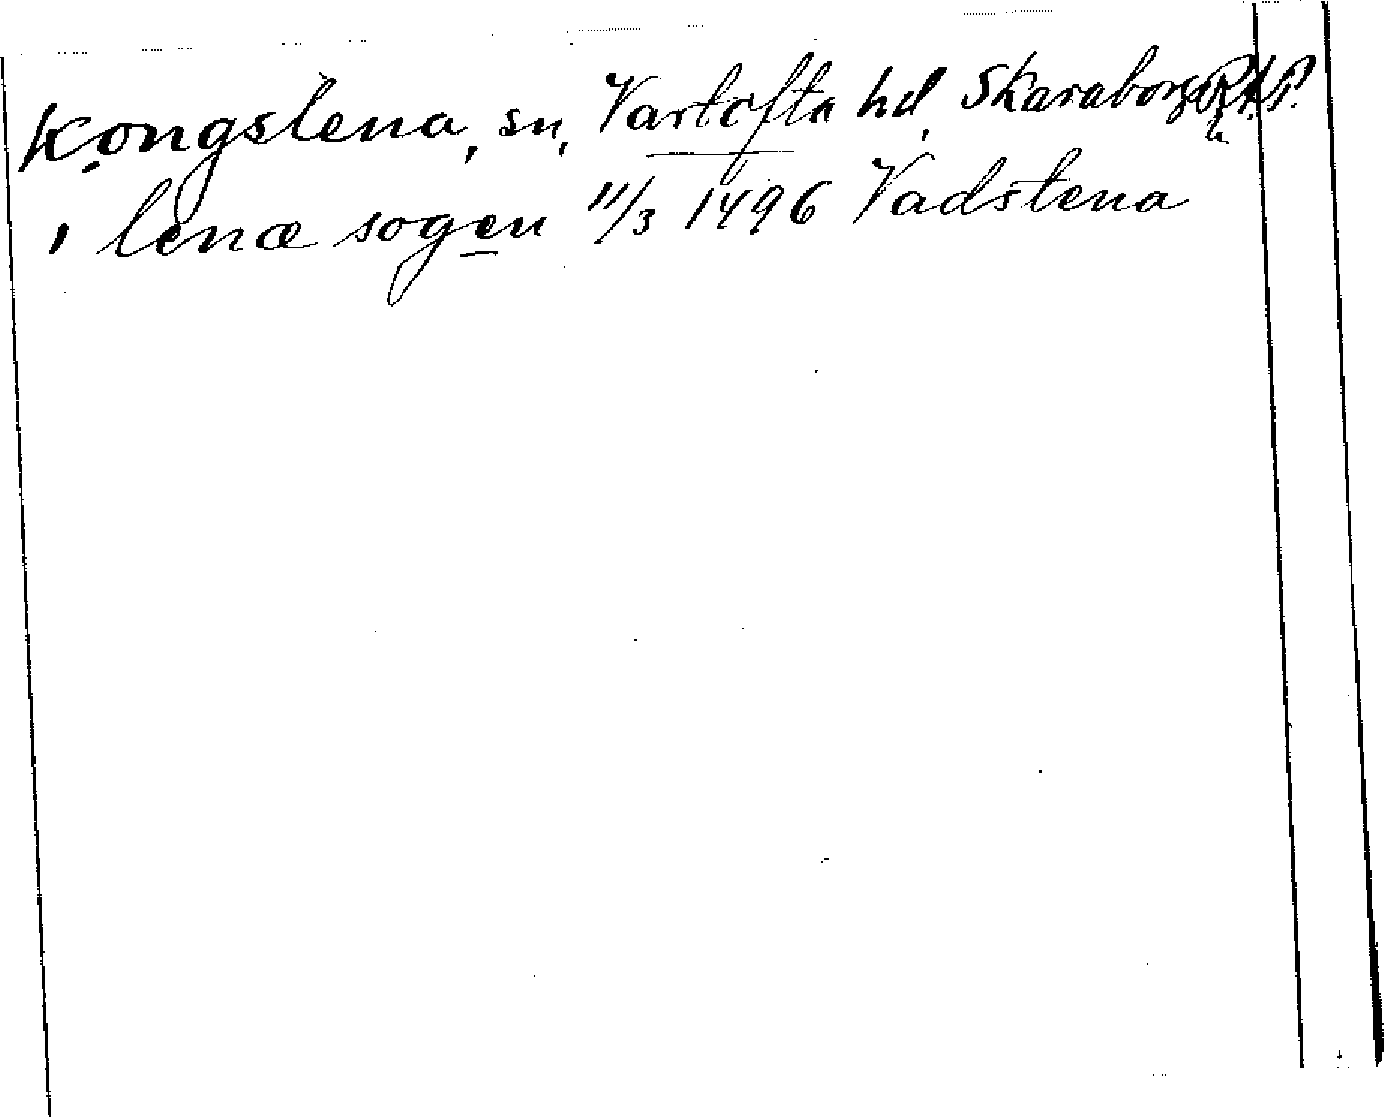 Kongslena, sn, Vartofta hd, Skaraborgs
, lenæ sogen 11/3 1496 Vadstena